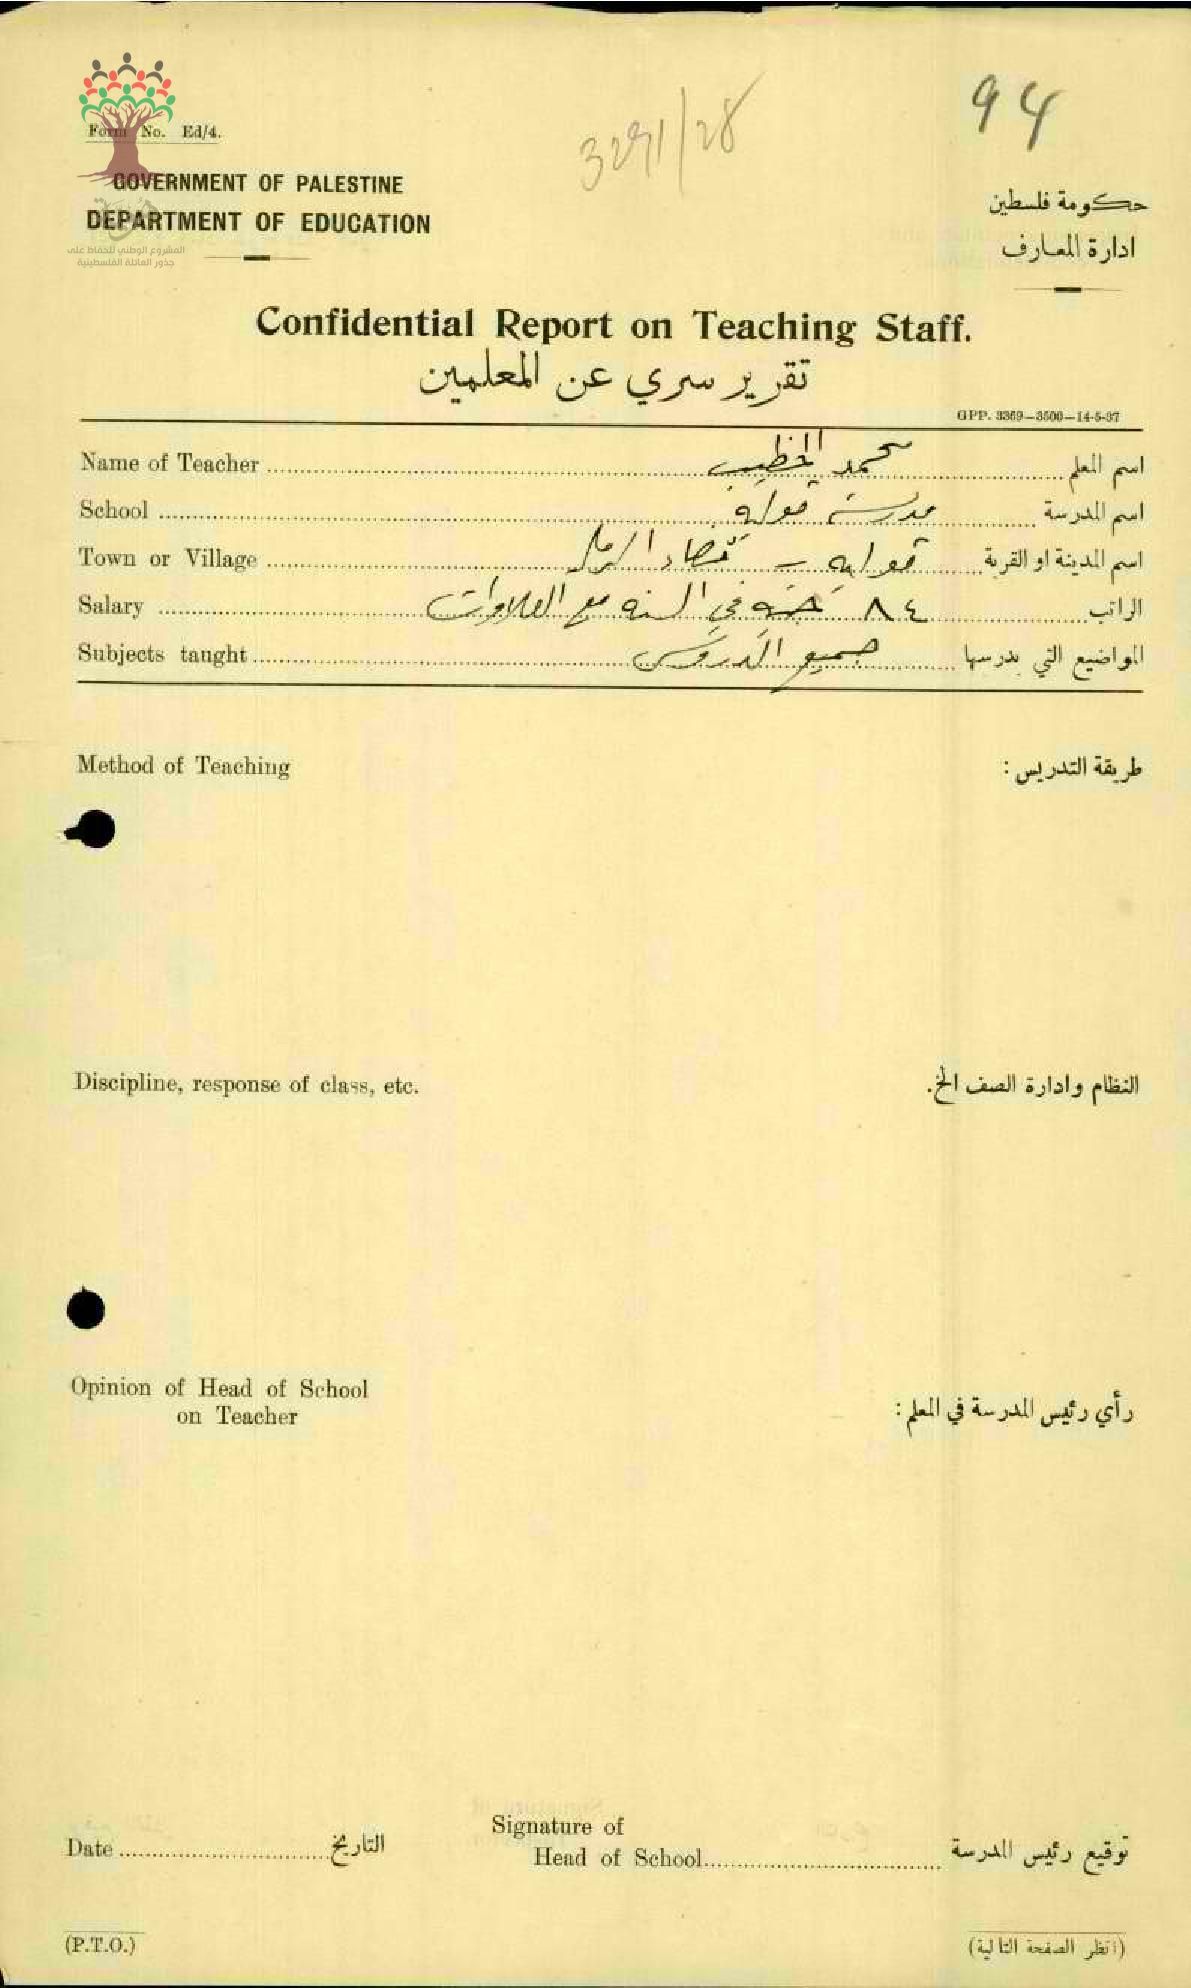 94
3291/28
Form No. Ed/4.
GOVERNMENT OF PALESTINE
DEPARTMENT OF EDUCATION
حكومة فلسطين
ادارة المعارف
هوية
المشروع الوطني للحفاظ على
جذور العائلة الفلسطينية
Confidential Report on Teaching Staff.
تقرير سري عن المعلمين
GPP. 3369—3500—14-5-37
Name of Teacher محمد الخطيب اسم المعلم
School مدرسة قوله اسم المدرسة
Town or Village قوله – قضاء الرمله اسم المدينة او القرية
Salary ٨٤ جنيه في السنه مع العلاوات الراتب
Subjects taught جميع الدروس المواضيع التي يدرسها
Method of Teaching طريقة التدريس :
Discipline, response of class, etc. النظام وادارة الصف الخ.
Opinion of Head of School
on Teacher رأي رئيس المدرسة في المعلم :
Date التاريخ Signature of
Head of School توقيع رئيس المدرسة
(P.T.O.) (انظر الصفحة التالية)